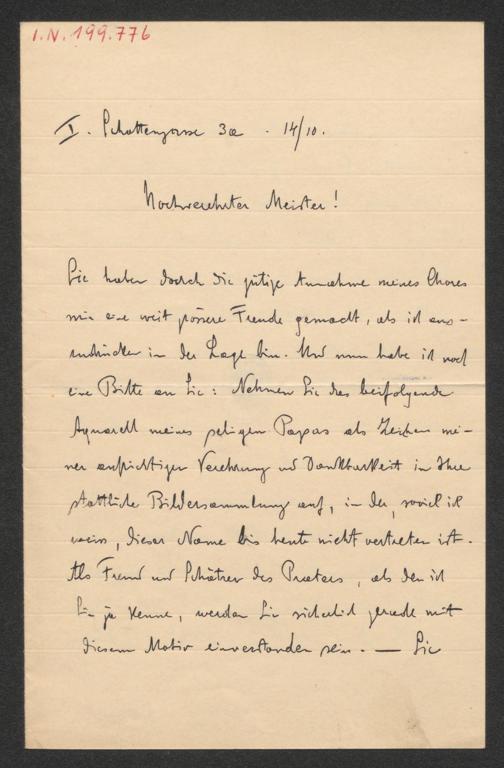 I.N. 199.776
I. Schottengasse 3a . 14/10.
Hochverehrter Meister!
Sie haben durch die gütige Annahme meines Chores
mir eine weit grössere Freude gemacht, als ich aus-
zudrücken in der Lage bin. Und nun habe ich noch
eine Bitte an Sie: Nehmen Sie das beifolgende
Aquarell meines seligen Papas als Zeichen mei-
ner aufrichtigen Verehrung und Dankbarkeit in Ihre
stattliche Bildersammlung auf, in der, soviel ich
weiss, dieser Name bis heute nicht vertreten ist.
Als Freund und Schätzer des Praters, als den ich
Sie ja kenne, werden Sie sicherlich gerade mit
diesem Motiv einverstanden sein. — Sie